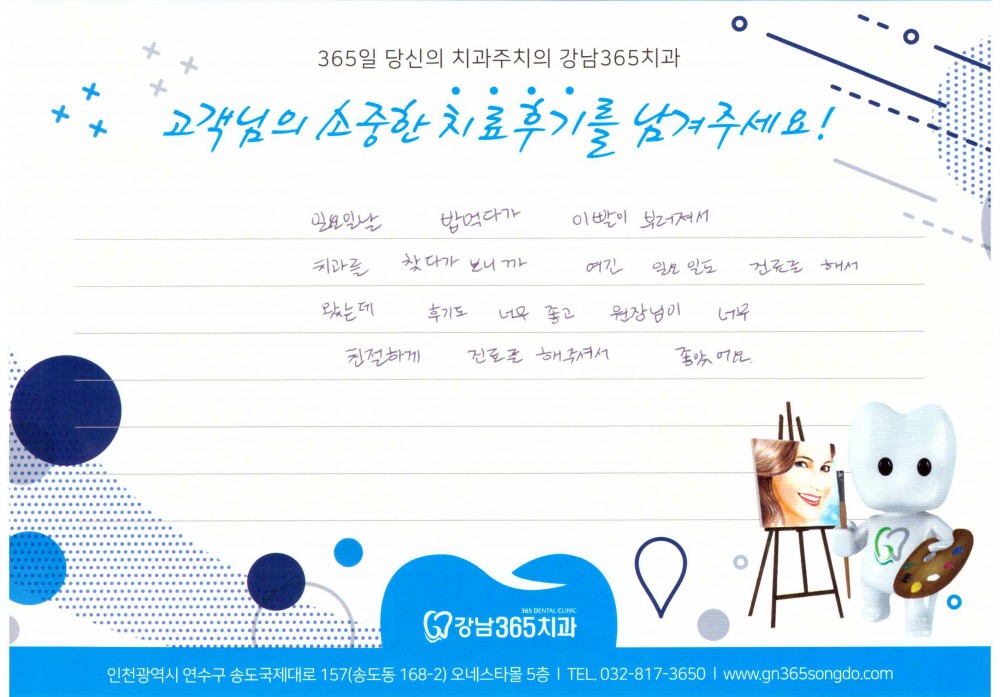 365일 당신의 치과주치의 강남365치과
고객님의 소중한 치료후기를 남겨주세요!
일요일날 밥먹다가 이빨이 부러져서
치과를 찾다가 보니까 여긴 일요일도 진료를 해서
왔는데 후기도 너무 좋고 원장님이 너무
친절하게 진료를 해주셔서 좋았어요.
365 DENTAL CLINIC
강남365치과
인천광역시 연수구 송도국제대로 157(송도동 168-2) 오네스타몰 5층 I TEL. 032-817-3650 I www.gn365songdo.com